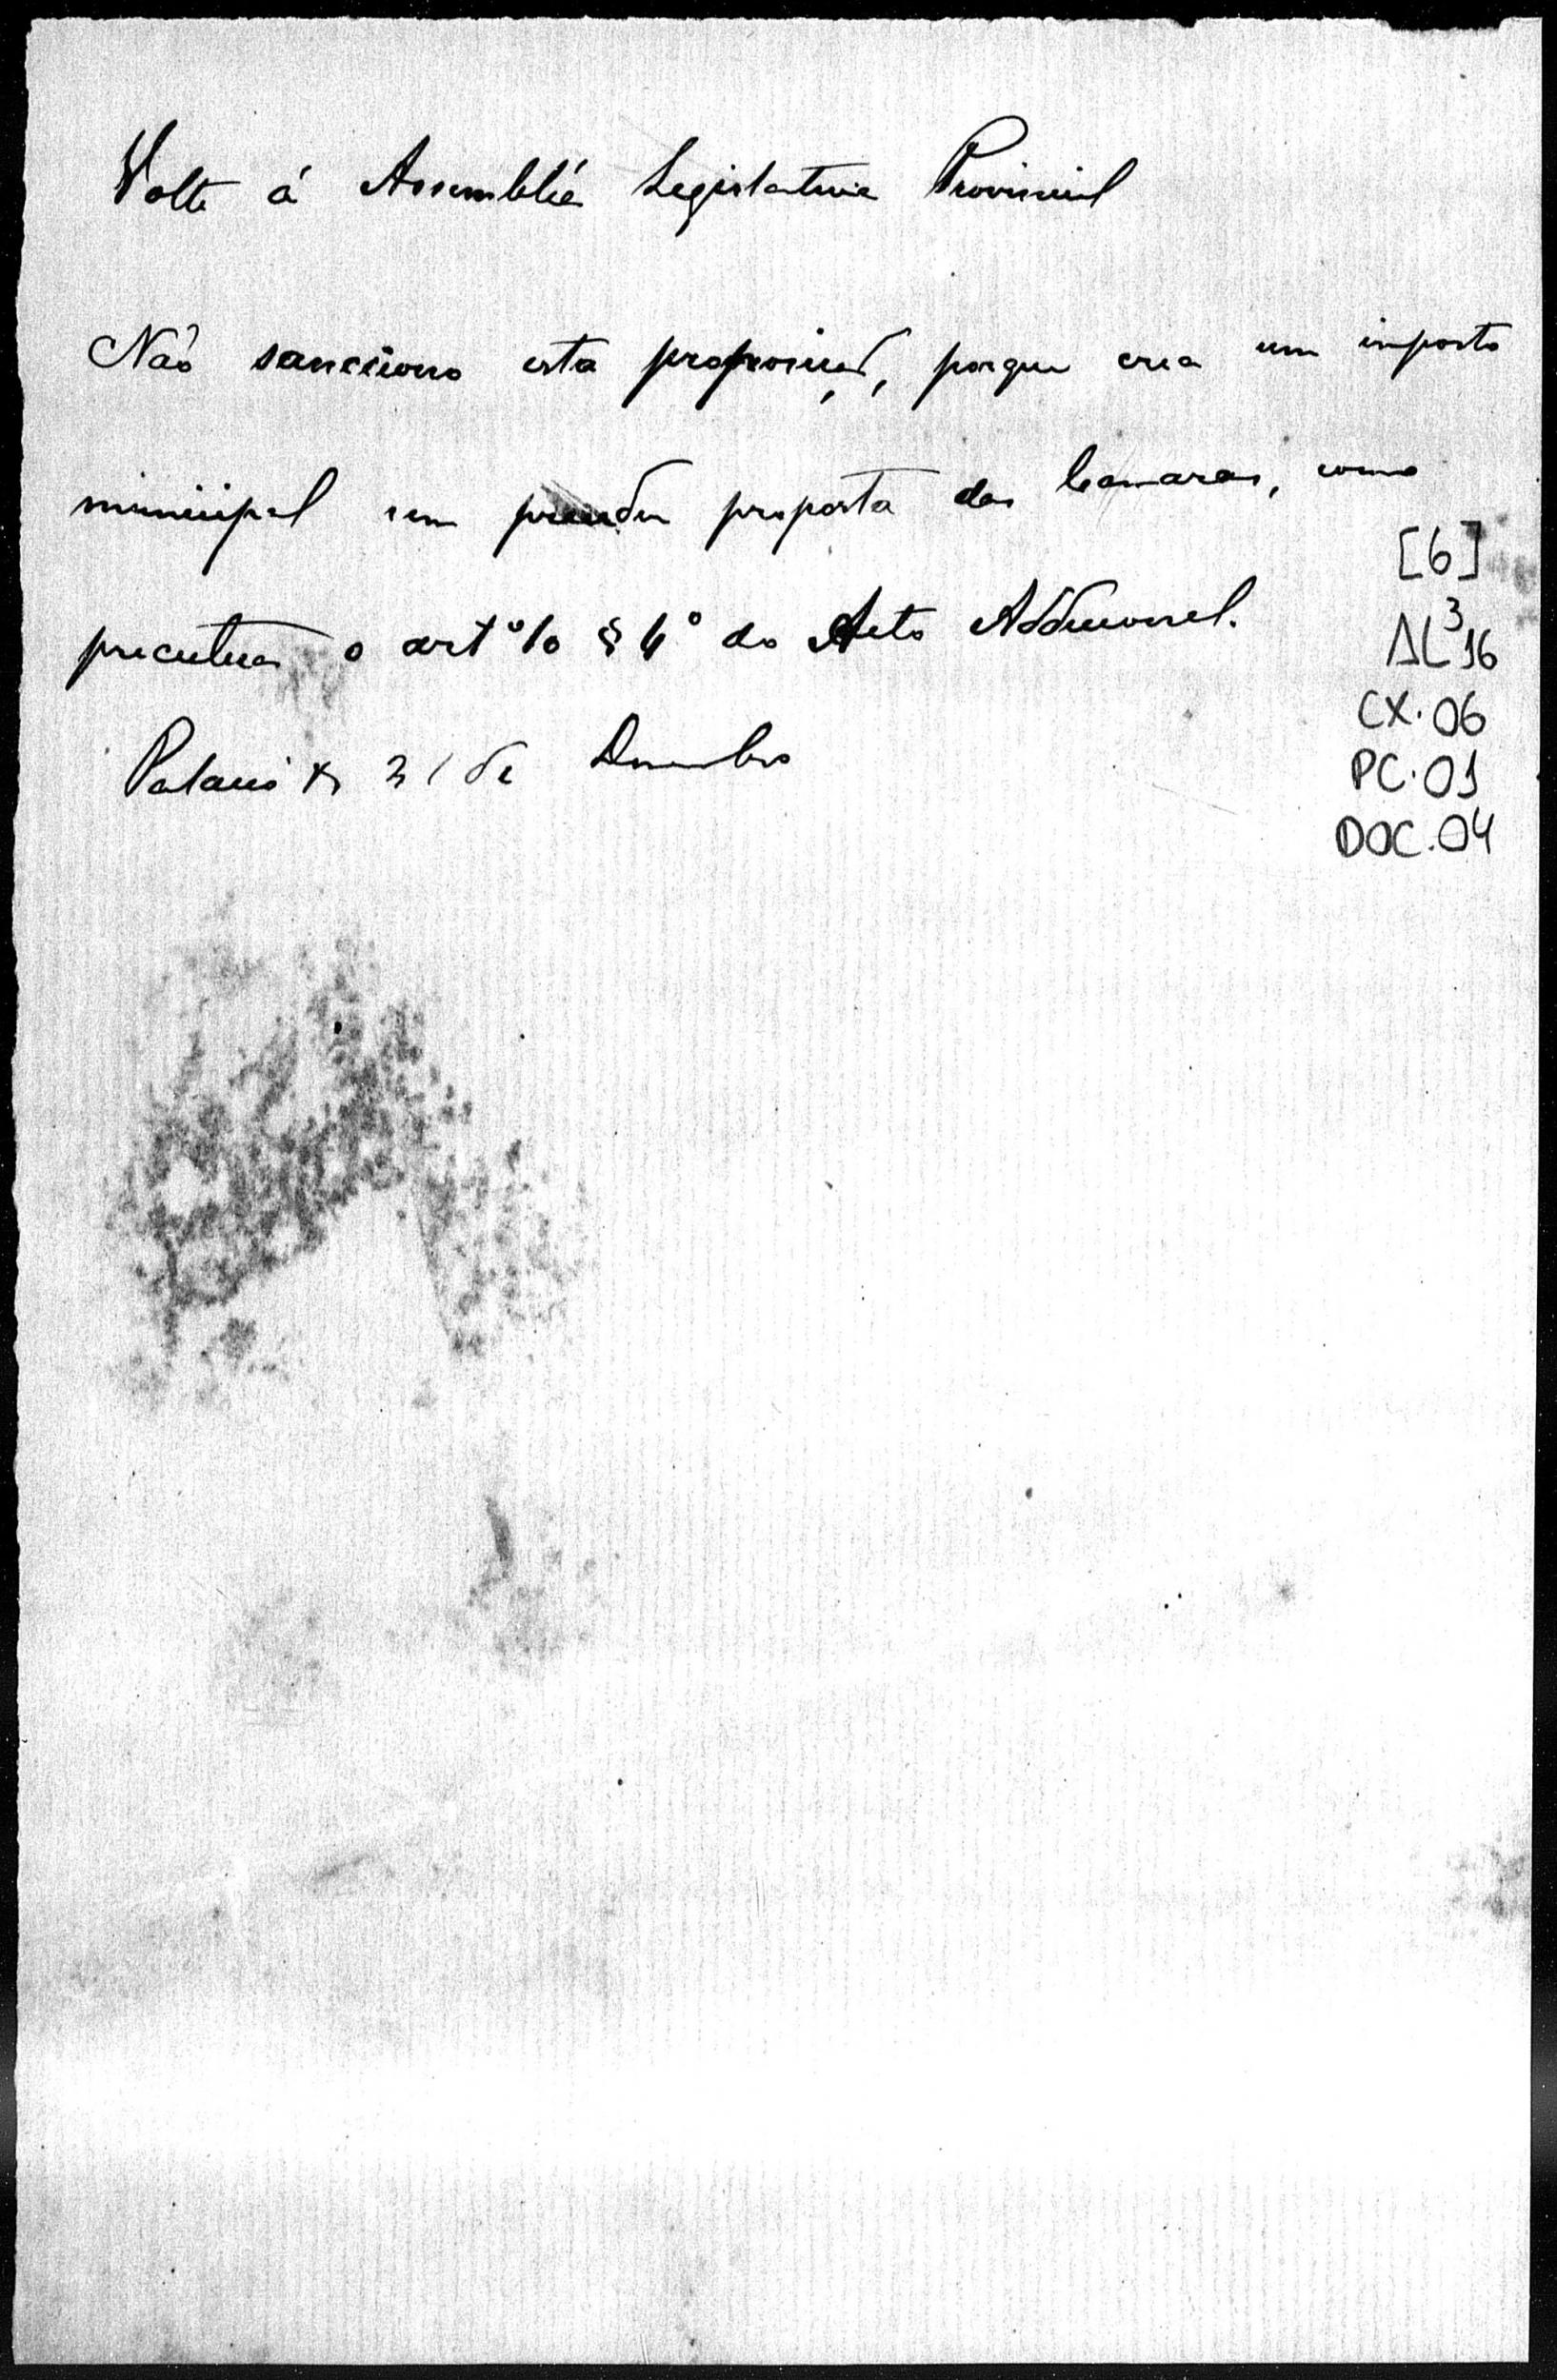 Volte á Assembléa Legislativa Provincial
Não sancciono esta proposição, porque crea um imposto
municipal sem preceder proposta das Camaras, como
preceitua o artº 10 § 4º do Acto Addicional.
[6]
AL³16
CX.06
PC.01
DOC.04
Palacio 21 de Dezembro